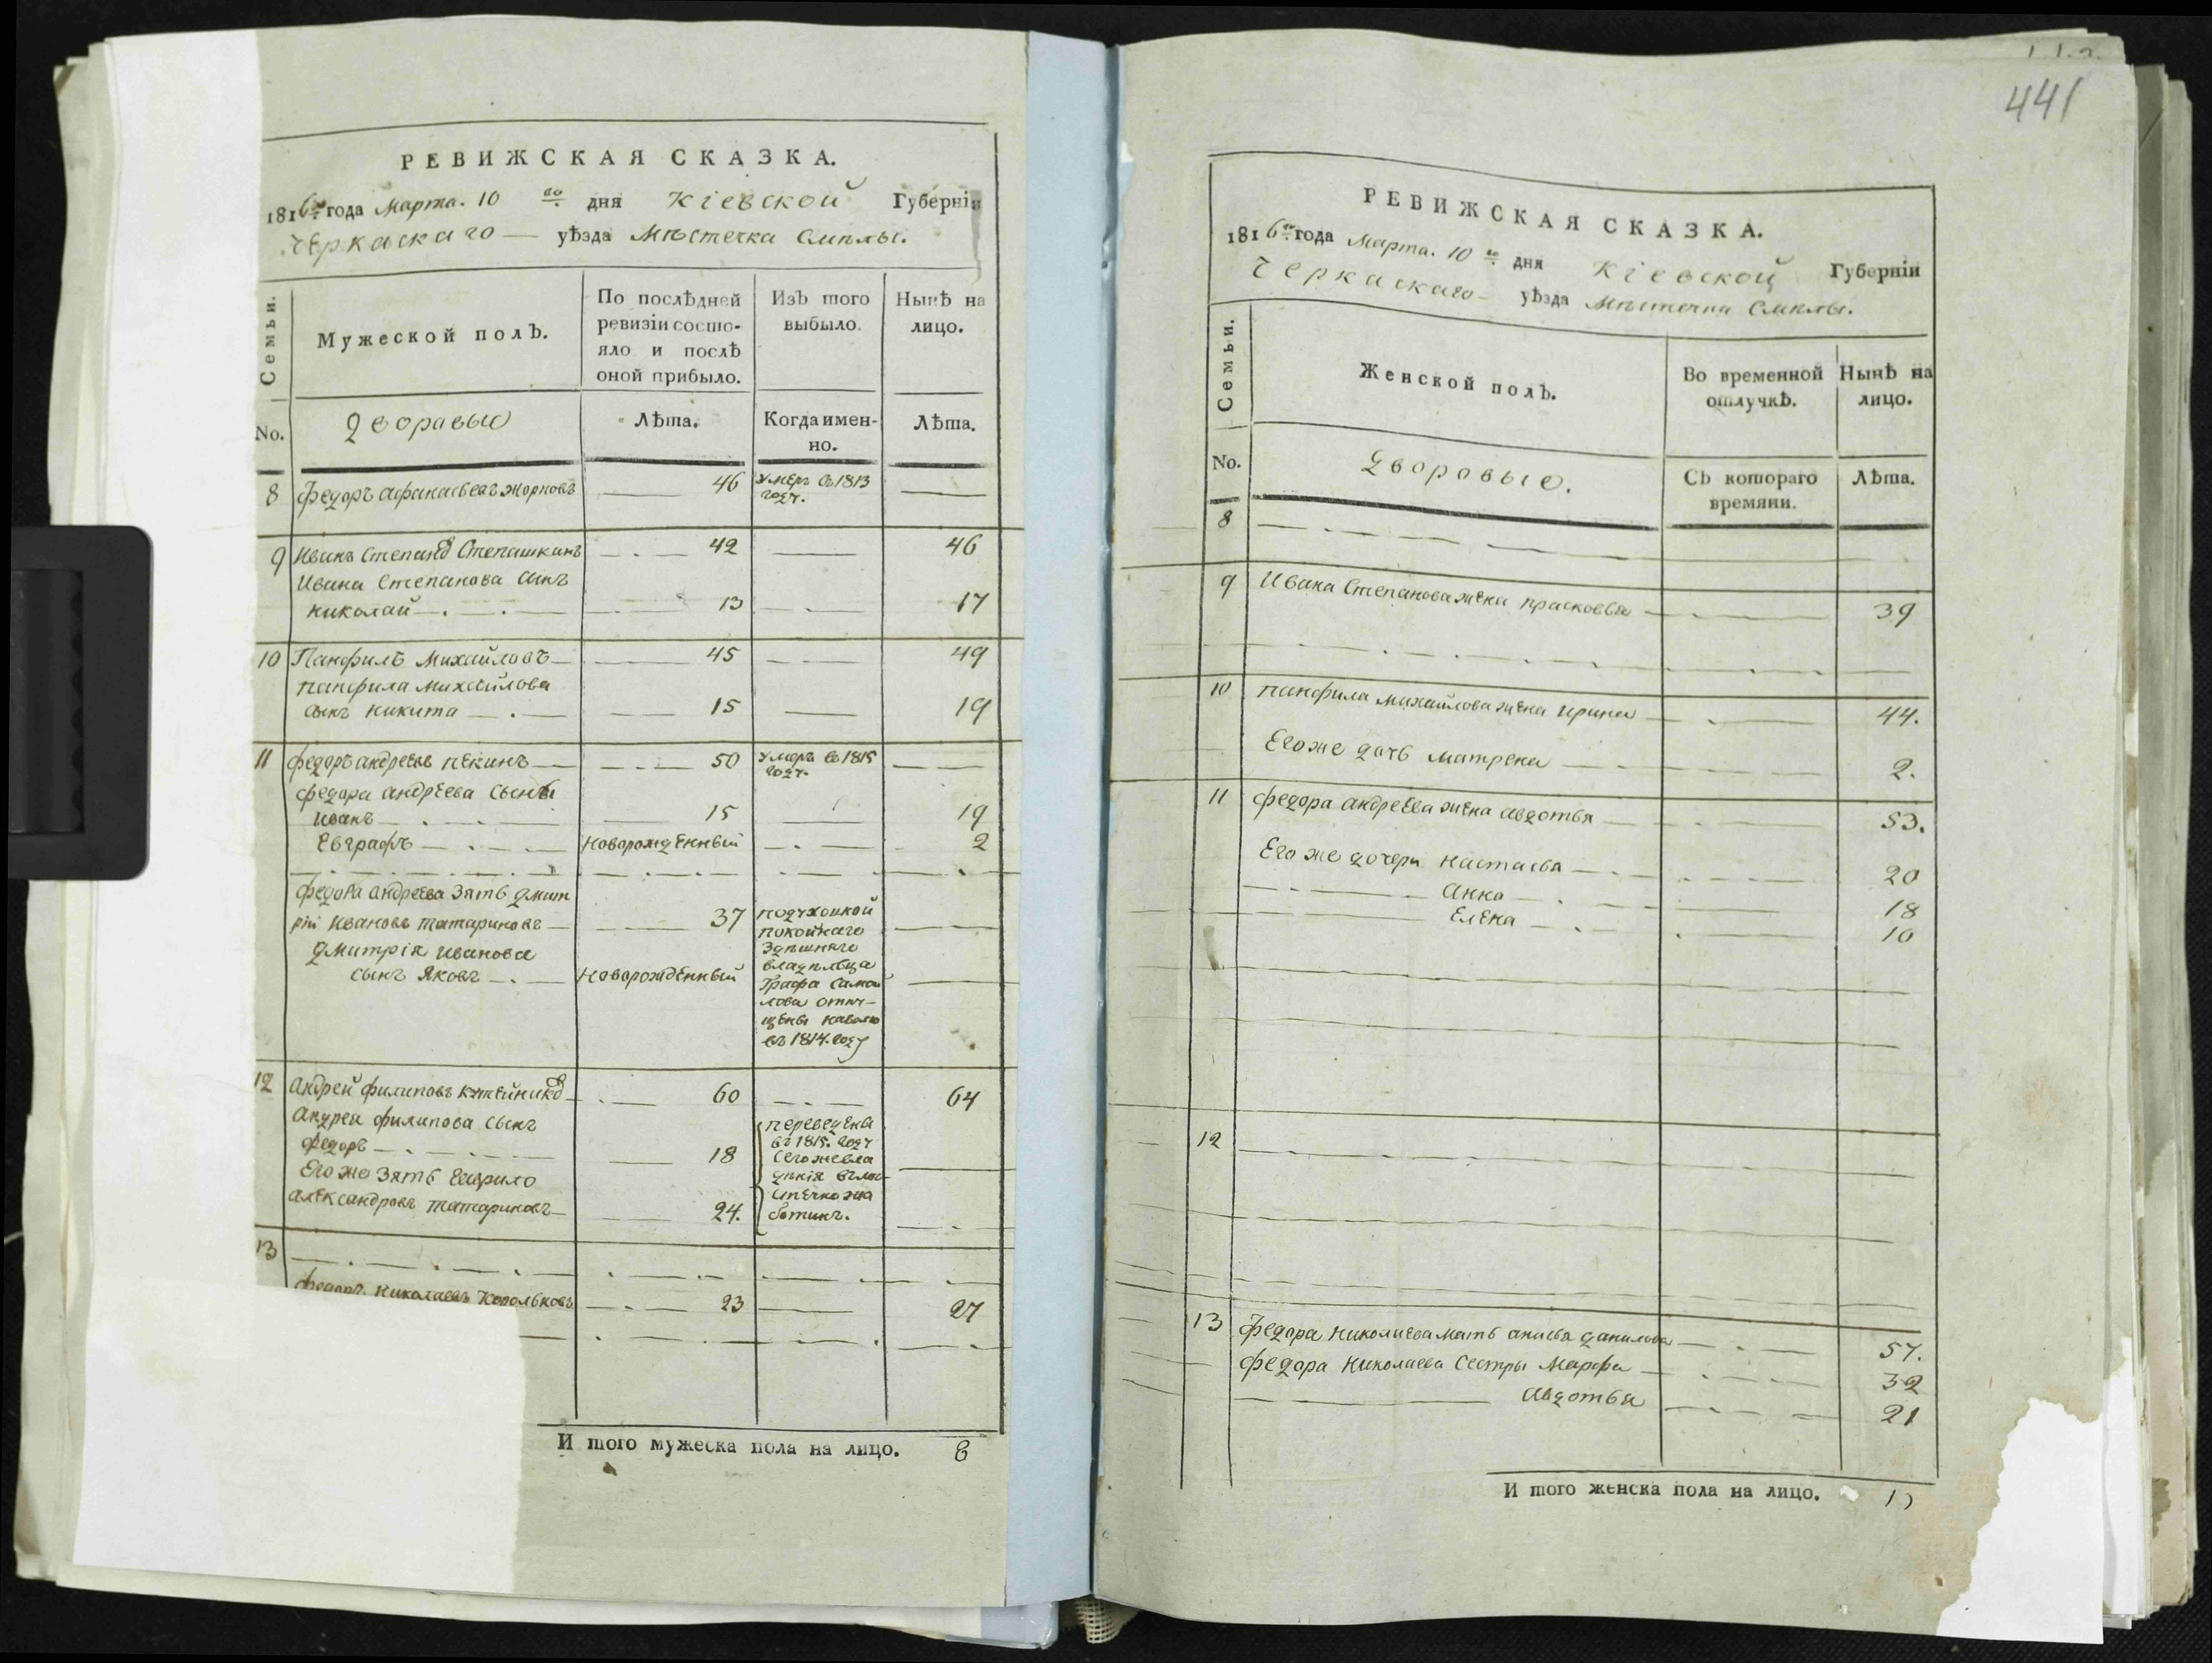 РЕВИЖСКАЯ СКАЗКА.
1816го года Марта. 10 го дня Кіевской Губерніи
Черкаскаго — уѣзда Мѣстечка Смѣлы.
Семьи.
Мужеской полЪ.
По послѣдней ревизіи состояло и послѣ оной прибыло.
ИзЪ того выбыло.
Нынѣ на лицо.
No.
Дворовые
Лѣта.
Когда именно.
Лѣта.
8 Федоръ Афанасьевъ 46 умеръ въ 1813 —
году.
9 Иванъ Степановъ Степашкинъ 42 — 46
Ивана Степанова сынъ
Николай — 13 — 17
10 Панфилъ Михайловъ — 45 — 49
Панфила Михайлова
сынъ Никита — 15 — 19
11 Федоръ Андреевъ Пекинъ — 50 умеръ въ 1815 —
году.
Федора Андреева сыны
Иванъ — 15 — 19
Евграфъ — новорожденный — 2
Федора Андреева зять Дмит
рій Ивановъ Татариновъ — 37 —
Дмитрія Иванова
сынъ Яковъ — новорожденный —
покойнаго
здѣшняго
владѣльца
Графа Самой
лова отпу-
щены на волю
въ 1814. году
12 Андрей Филиповъ Кутейниковъ — 60 — 64
Андрея Филипова сынъ
Федоръ — 18 —
Его же зять Гаврило
Александровъ Татариновъ — 24. —
переведены
въ 1815. году
сего же вла
дѣнія въ мѣ-
стечко Жа
ботинъ.
13
Федоръ Николаевъ Корольковъ — 23 — 27
И того мужеска пола на лицо. 8
441
РЕВИЖСКАЯ СКАЗКА.
1816го года Марта. 10 го дня Кіевской Губерніи
Черкаскаго — уѣзда Мѣстечка Смѣлы.
Семьи.
Женской полЪ.
Во временной отлучкѣ.
НынѢ на лицо.
No.
Дворовые.
СЬ котораго времяни.
Лѣта.
8
9 Ивана Степанова жена Прасковья — 39
10 Панфила Михайлова жена Ирина — 44.
Его же дочь Матрена — 2.
11 Федора Андреева жена Авдотья — 53.
Его же дочери Настасья — 20
Анна — 18
Елена — 10
12
13 Федора Николаева мать Анисья Данилова — 57.
Федора Николаева сестры Марфа — 32
Авдотья — 21
И того женска пола на лицо.